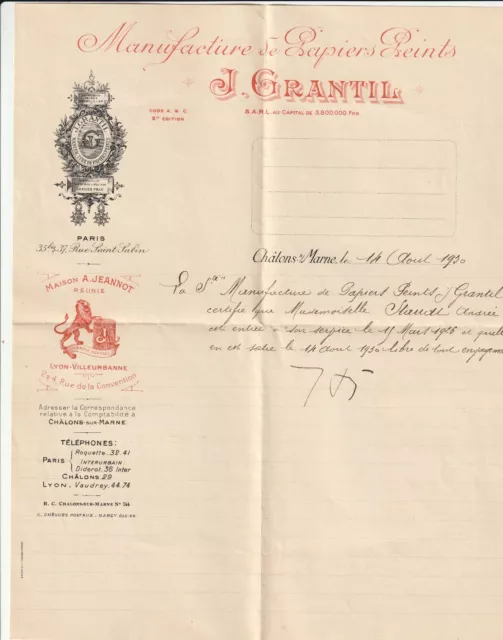 Manufacture de Papiers Peints
J. GRANTIL
CODE A. B. C.
5e EDITION
S.A.R.L. AU CAPITAL DE 3.800.000 Frs
J. GRANTIL
GRAND PRIX
PARIS
35bis, 37, Rue Saint-Sabin
Châlons s/Marne, le 14 Aout 1930
MAISON A. JEANNOT
RÉUNIE
LYON-VILLEURBANNE
2 & 4, Rue de la Convention
La Sté Manufacture de Papiers Peints J Grantil
certifie que Mademoiselle Staudt Andrée
est entrée à son service le 15 Mars 1926 et quelle
en est sortie le 14 aout 1930 libre de tout engagement
Adresser la Correspondance
relative à la Comptabilité à
CHÂLONS-SUR-MARNE
TÉLÉPHONES:
PARIS
Roquette. 32.41
INTERURBAIN:
Diderot. 36 Inter
CHÂLONS. 29
LYON. Vaudrey. 44.74
R. C. CHALONS-SUR-MARNE No
C. CHÈQUES POSTAUX - NANCY